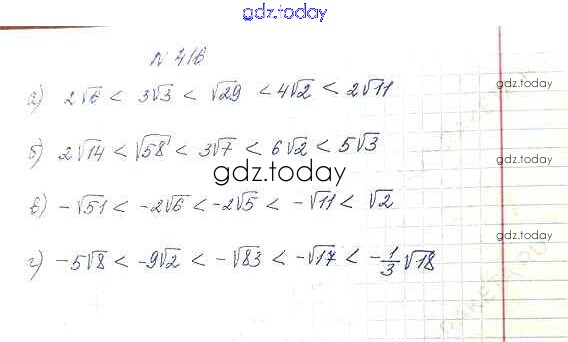 gdz.today
N 416
а) 2√6 < 3√3 < √29 < 4√2 < 2√11
gdz.today
б) 2√14 < √58 < 3√7 < 6√2 < 5√3
gdz.today
gdz.today
в) -√51 < -2√6 < -2√5 < -√11 < √2
gdz.today
г) -5√8 < -9√2 < -√83 < -√17 < -1/3√18
gdz.today